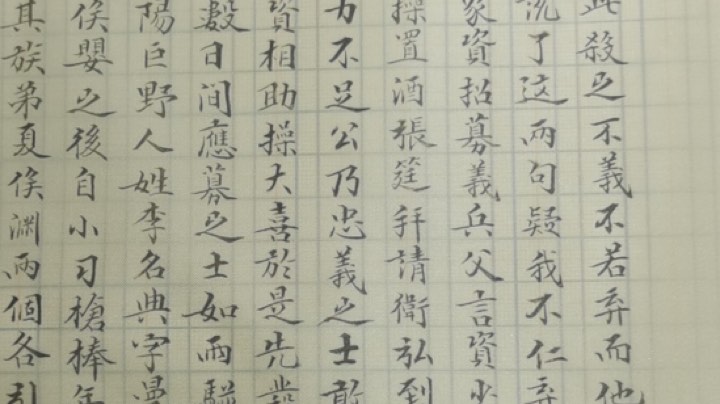 此殺之不義不若弃而他
说了这两句疑我不仁弃
家資招募義兵父言資少
操置酒張筵拜請衛弘到
力不足公乃忠義之士敢
資相助操大喜於是先
數日間應募之士如雨駢
陽巨野人姓李名典字曼
侯嬰之後自小习槍棒年
其族弟夏侯渊两個各引